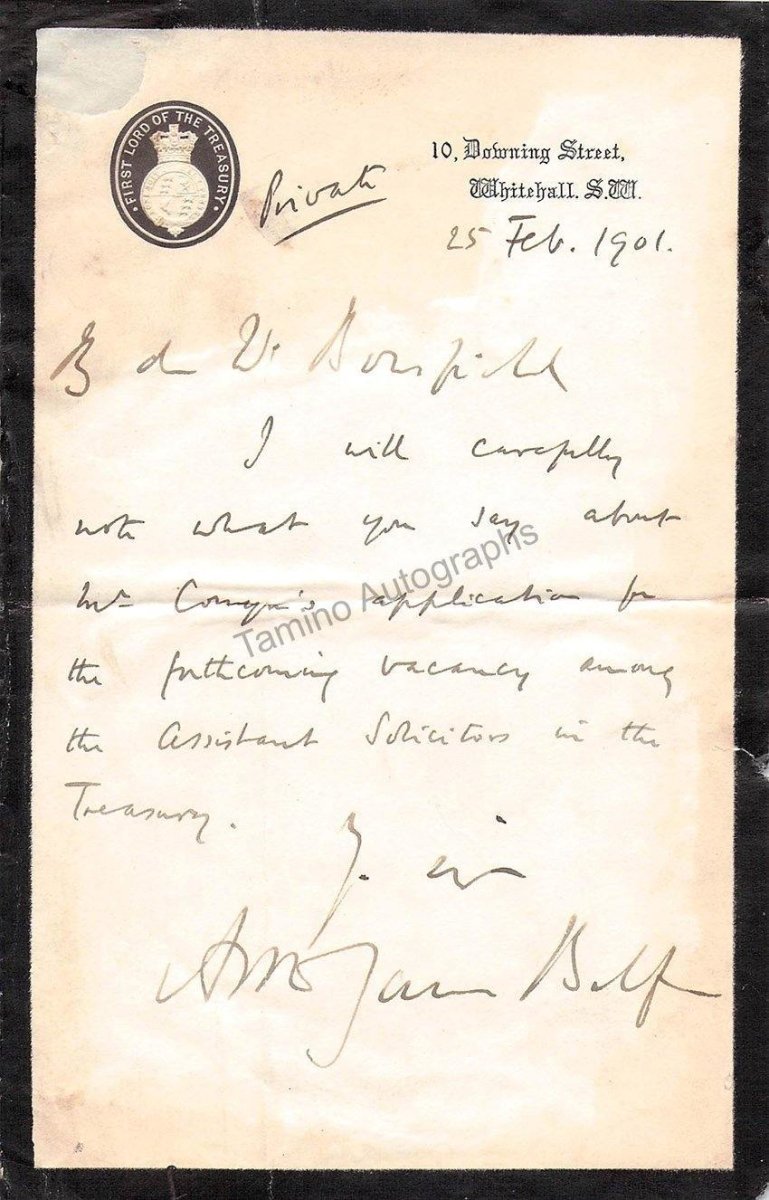 FIRST LORD OF THE TREASURY
Private
10, Downing Street,
Whitehall. S.W.
25 Feb. 1901.
I will carefully
note what you say about
Mr application for
Tamino Autographs
the forthcoming vacancy among
the Assistant Solicitors in the
Treasury.
Arthur James Balfour